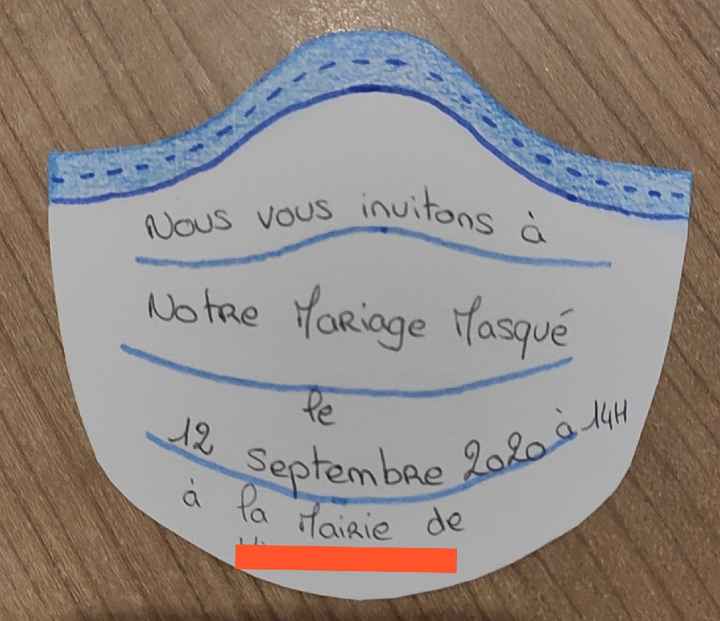 Nous vous invitons à
Notre Mariage Masqué
le
12 septembre 2020 à 14H
à la Mairie de